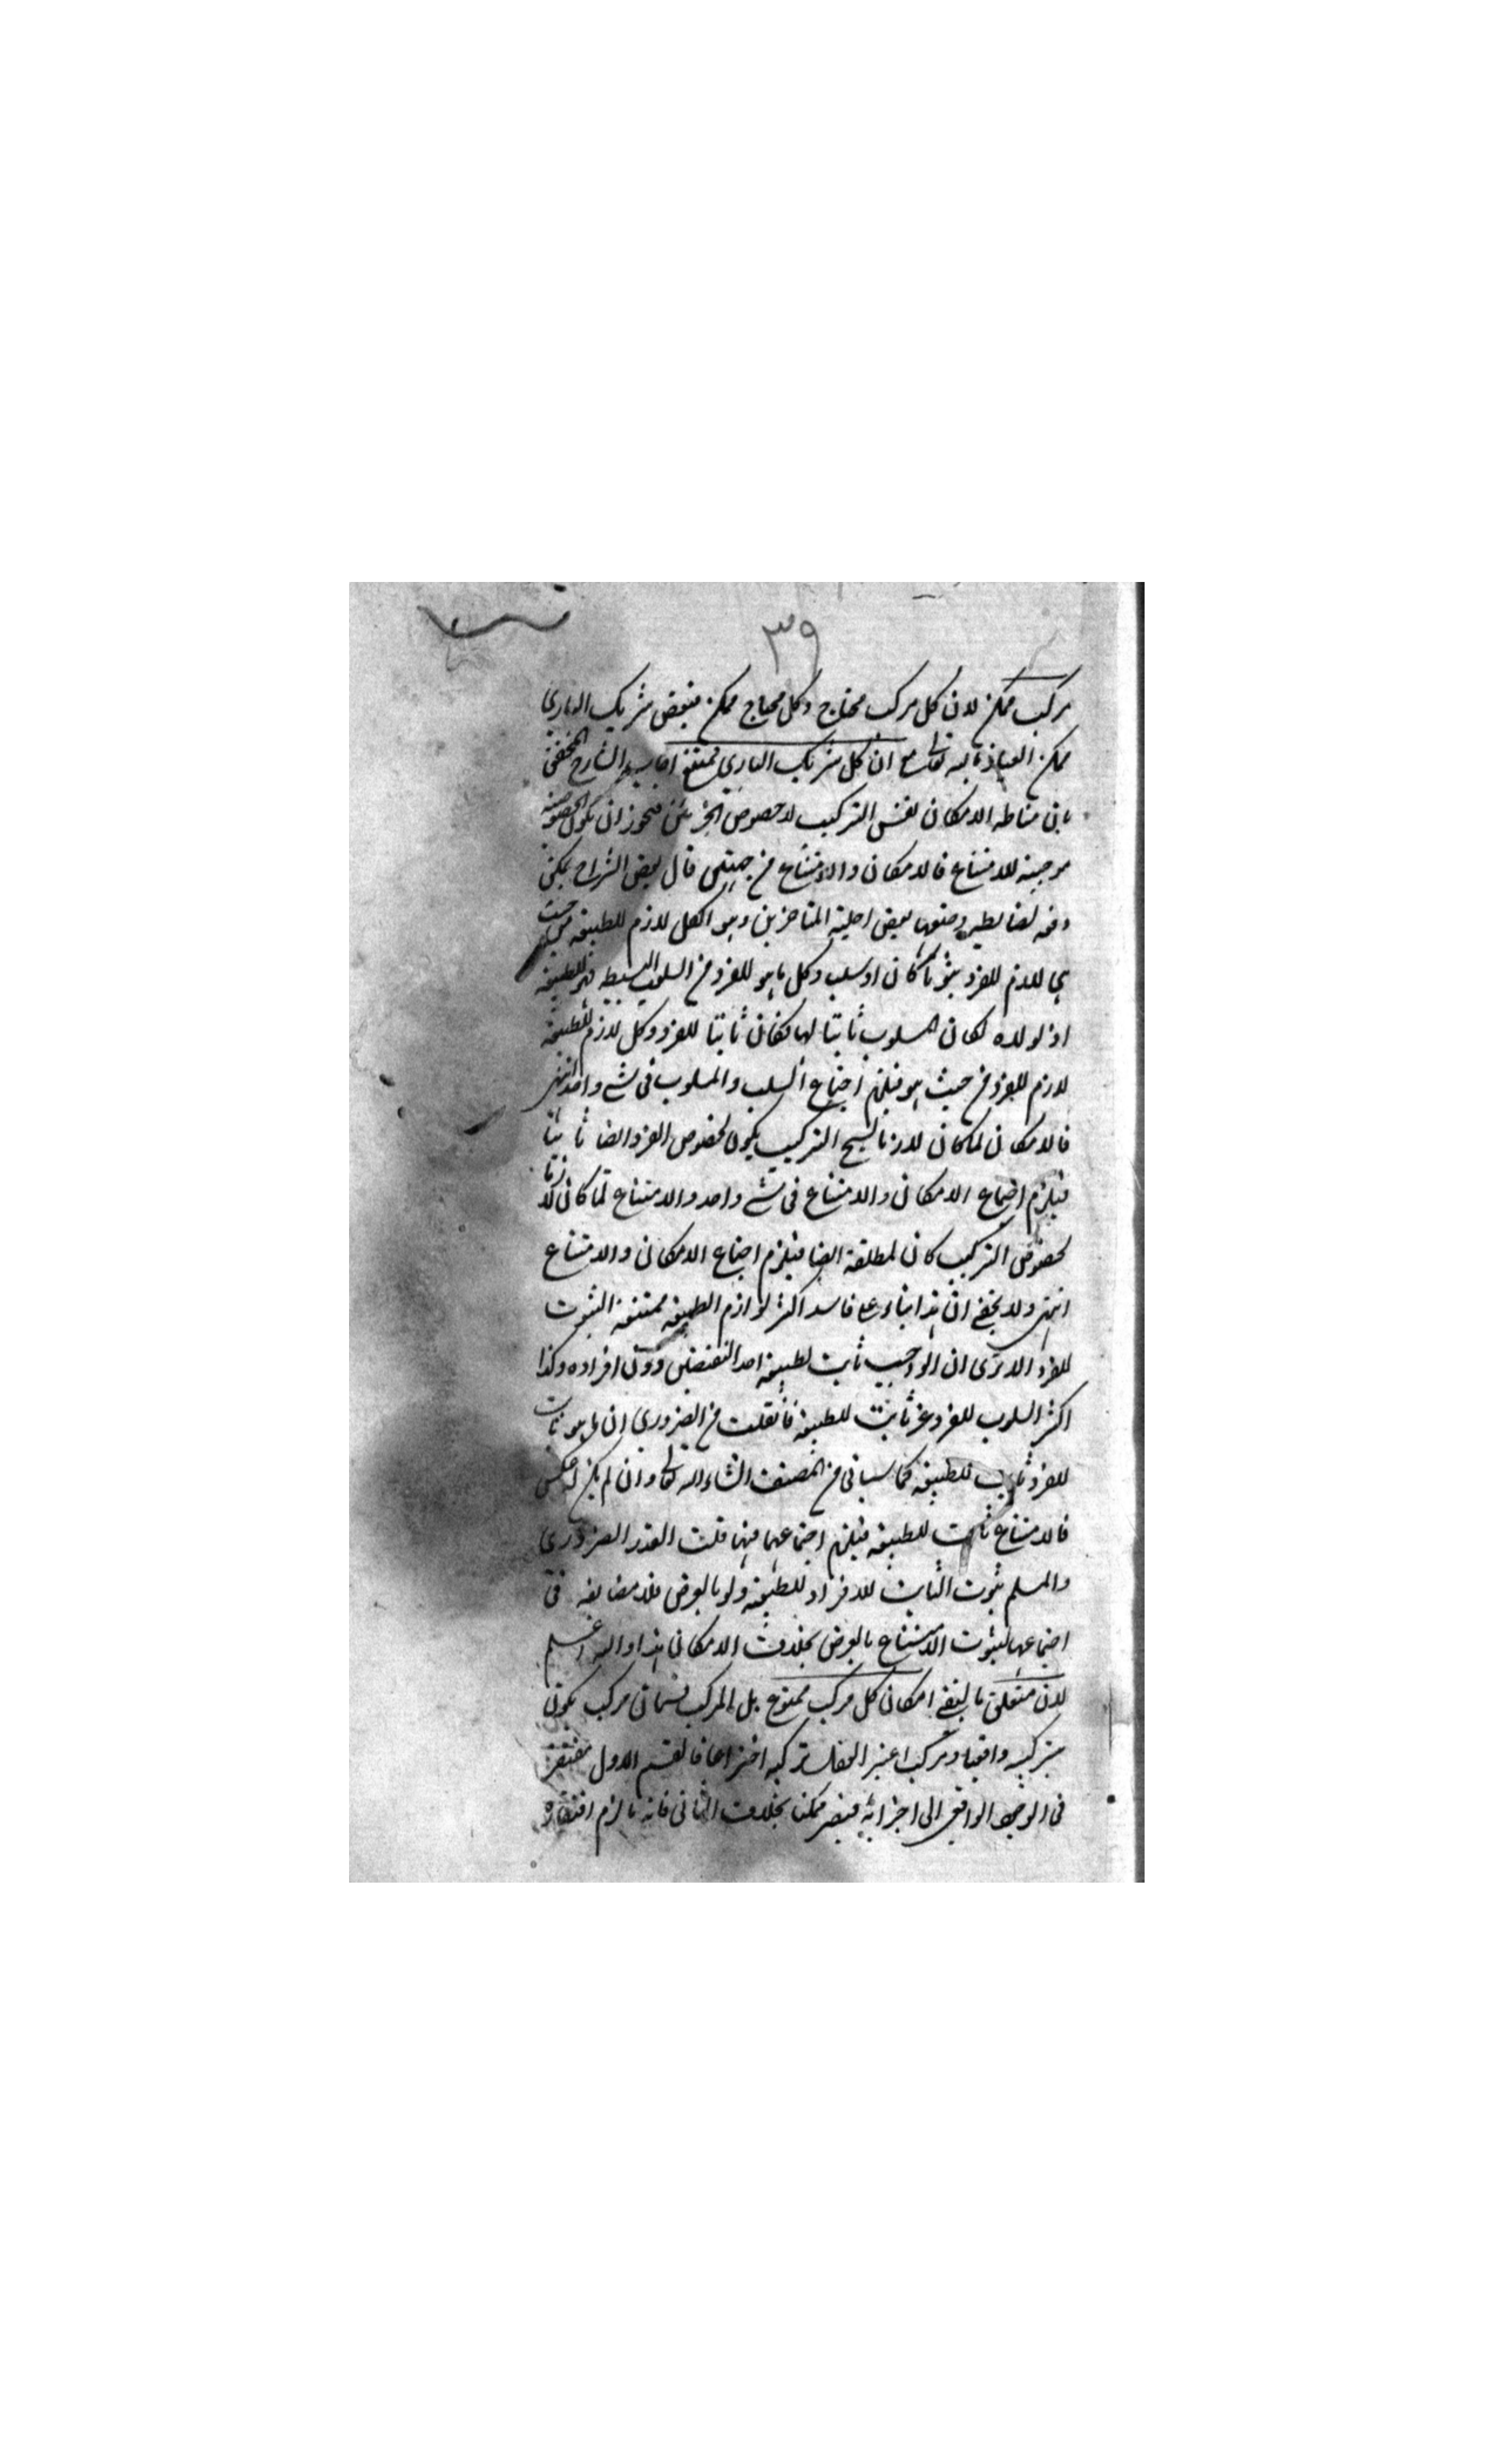 ٣٩
مركب ممكن لان كل مركب محتاج وكل محتاج ممكن فبعض شريك الباري
ممكن العياذ بالله تعالى مع ان كل شريك الباري ممتنع اجاب الشارح المحقق
بان مناطه الامكان نفس التركيب لا خصوص الجزئين فيجوز ان يكون الخصوصية
موجبة للامتناع فالامكان والامتناع من جهتين قال بعض الشراح يمكن
دفعه لضابطين وضعهما بعض اجلة المتاخرين وهو ا كل لازم للطبيعة من حيث
هي لازم للفرد ثبوتا كان او سلبا وكل ما هو للفرد من السلوب البسيطة فهو للطبيعة
اذ لولاه لكان المسلوب ثابتا لها فكان ثابتا للفرد وكل لازم للطبيعة
لازم للفرد من حيث هو فيلزم اجتماع السلب والمسلوب في شيء واحد انتهى
فالامكان لما كان لازما لسنخ التركيب يكون لخصوص الفرد ايضا ثابتا
فيلزم اجتماع الامكان والامتناع في شيء واحد والامتناع لما كان لازما
لخصوص التركيب كان لمطلقه ايضا فيلزم اجتماع الامكان والامتناع
انتهى ولا يخفى ان هذا بناء على فاسد اكثر لوازم الطبيعة ممتنعة الثبوت
للفرد الا ترى ان الواجب ثابت لطبيعة احد النقيضين دون افراده وكذا
اكثر السلوب للفرد غير ثابت للطبيعة فان قلت من الضروري ان ما هو ثابت
للفرد ثابت للطبيعة كما سياتي من المصنف انشاء الله تعالى وان لم يكن له عكس
فالامتناع ثابت للطبيعة فيلزم اجتماعهما فيها قلت القدر الضروري
والمسلم ثبوت الثابت للافراد للطبيعة ولو بالعرض فلا مضايقة في
اجتماعهما لثبوت الامتناع بالعرض بخلاف الامكان هذا والله اعلم
لان متعلق بالنفي امكان كل مركب ممنوع بل المركب قسمان مركب يكون
تركيبه واقعيا ومركب اعتبر العقل تركيبه اختراعا فالقسم الاول مفتقر
في الوجود الواقعي الى اجزائه فيصير ممكنا بخلاف الثاني فانه ما لزم افتقاره